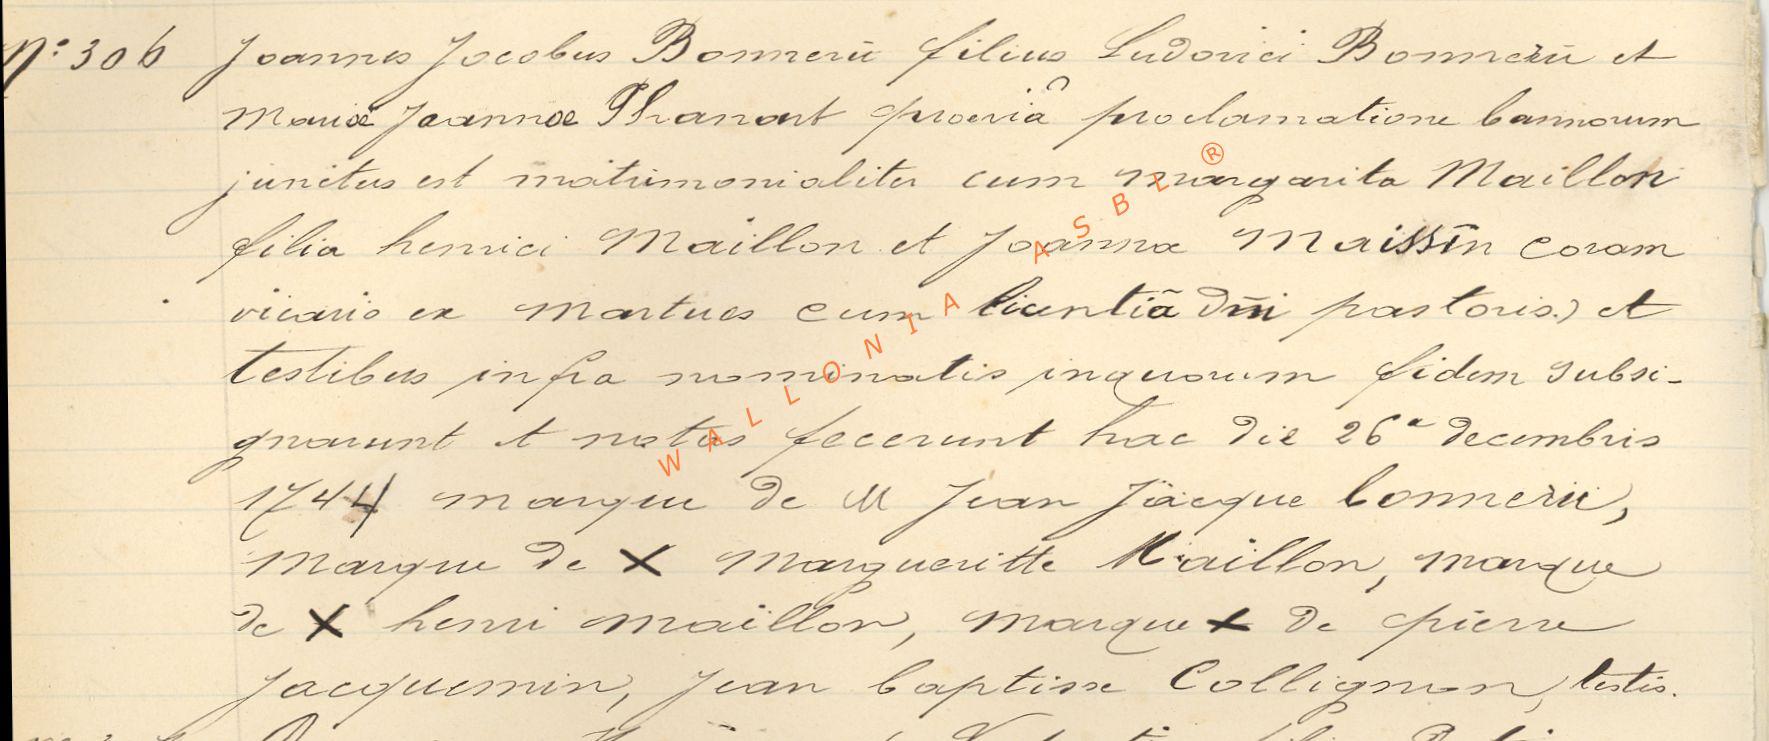 N° 306 Joannes Jacobus Bonnerü filius Ludovici Bonnerü et
mariæ Joannæ Thanart præviâ proclamatione bannorum
junctus est matrimonialiter cum margarita Maillon
filia henrici Maillon et Joanna Maissin coram
vicario ex Martues cum licentiâ dni pastoris) et
testibus infra nominatis inquorum fidem subsi-
gnarunt et notas fecerunt hac die 26a decembris
1744 marque de M Jean Jäcque bonnerü,
marque de X margueritte Maillon, marque
de X henri maillon, marque X de pierre
jacquemin, jean baptise Collignon, testis.
WALLONIA ASBL ®